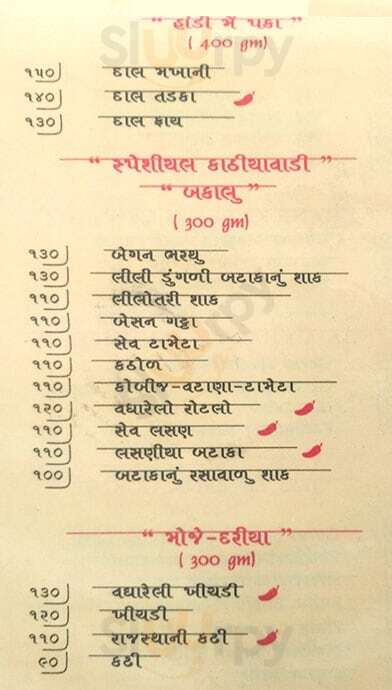 “ હાંડી મેં પકા ”
( 400 gm)
૧૫૦ દાલ મખાની
૧૪૦ દાલ તડકા
૧૩૦ દાલ ફ્રાય
“ સ્પેશીયલ કાઠીયાવાડી ”
“ બકાલુ ”
( 300 gm)
૧૩૦ બેગન ભરથુ
૧૩૦ લીલી ડુંગળી બટાકાનું શાક
૧૧૦ લીલોતરી શાક
૧૧૦ બેસન ગટ્ટા
૧૧૦ સેવ ટામેટા
૧૧૦ કઠોળ
૧૧૦ કોબીજ-વટાણા-ટામેટા
૧૨૦ વઘારેલો રોટલો
૧૧૦ સેવ લસણ
૧૧૦ લસણીયા બટાકા
૧૦૦ બટાકાનું રસાવાળુ શાક
“ મોજે-દરીયા ”
( 300 gm)
૧૩૦ વઘારેલી ખીચડી
૧૨૦ ખીચડી
૧૧૦ રાજસ્થાની કઢી
૯૦ કઢી